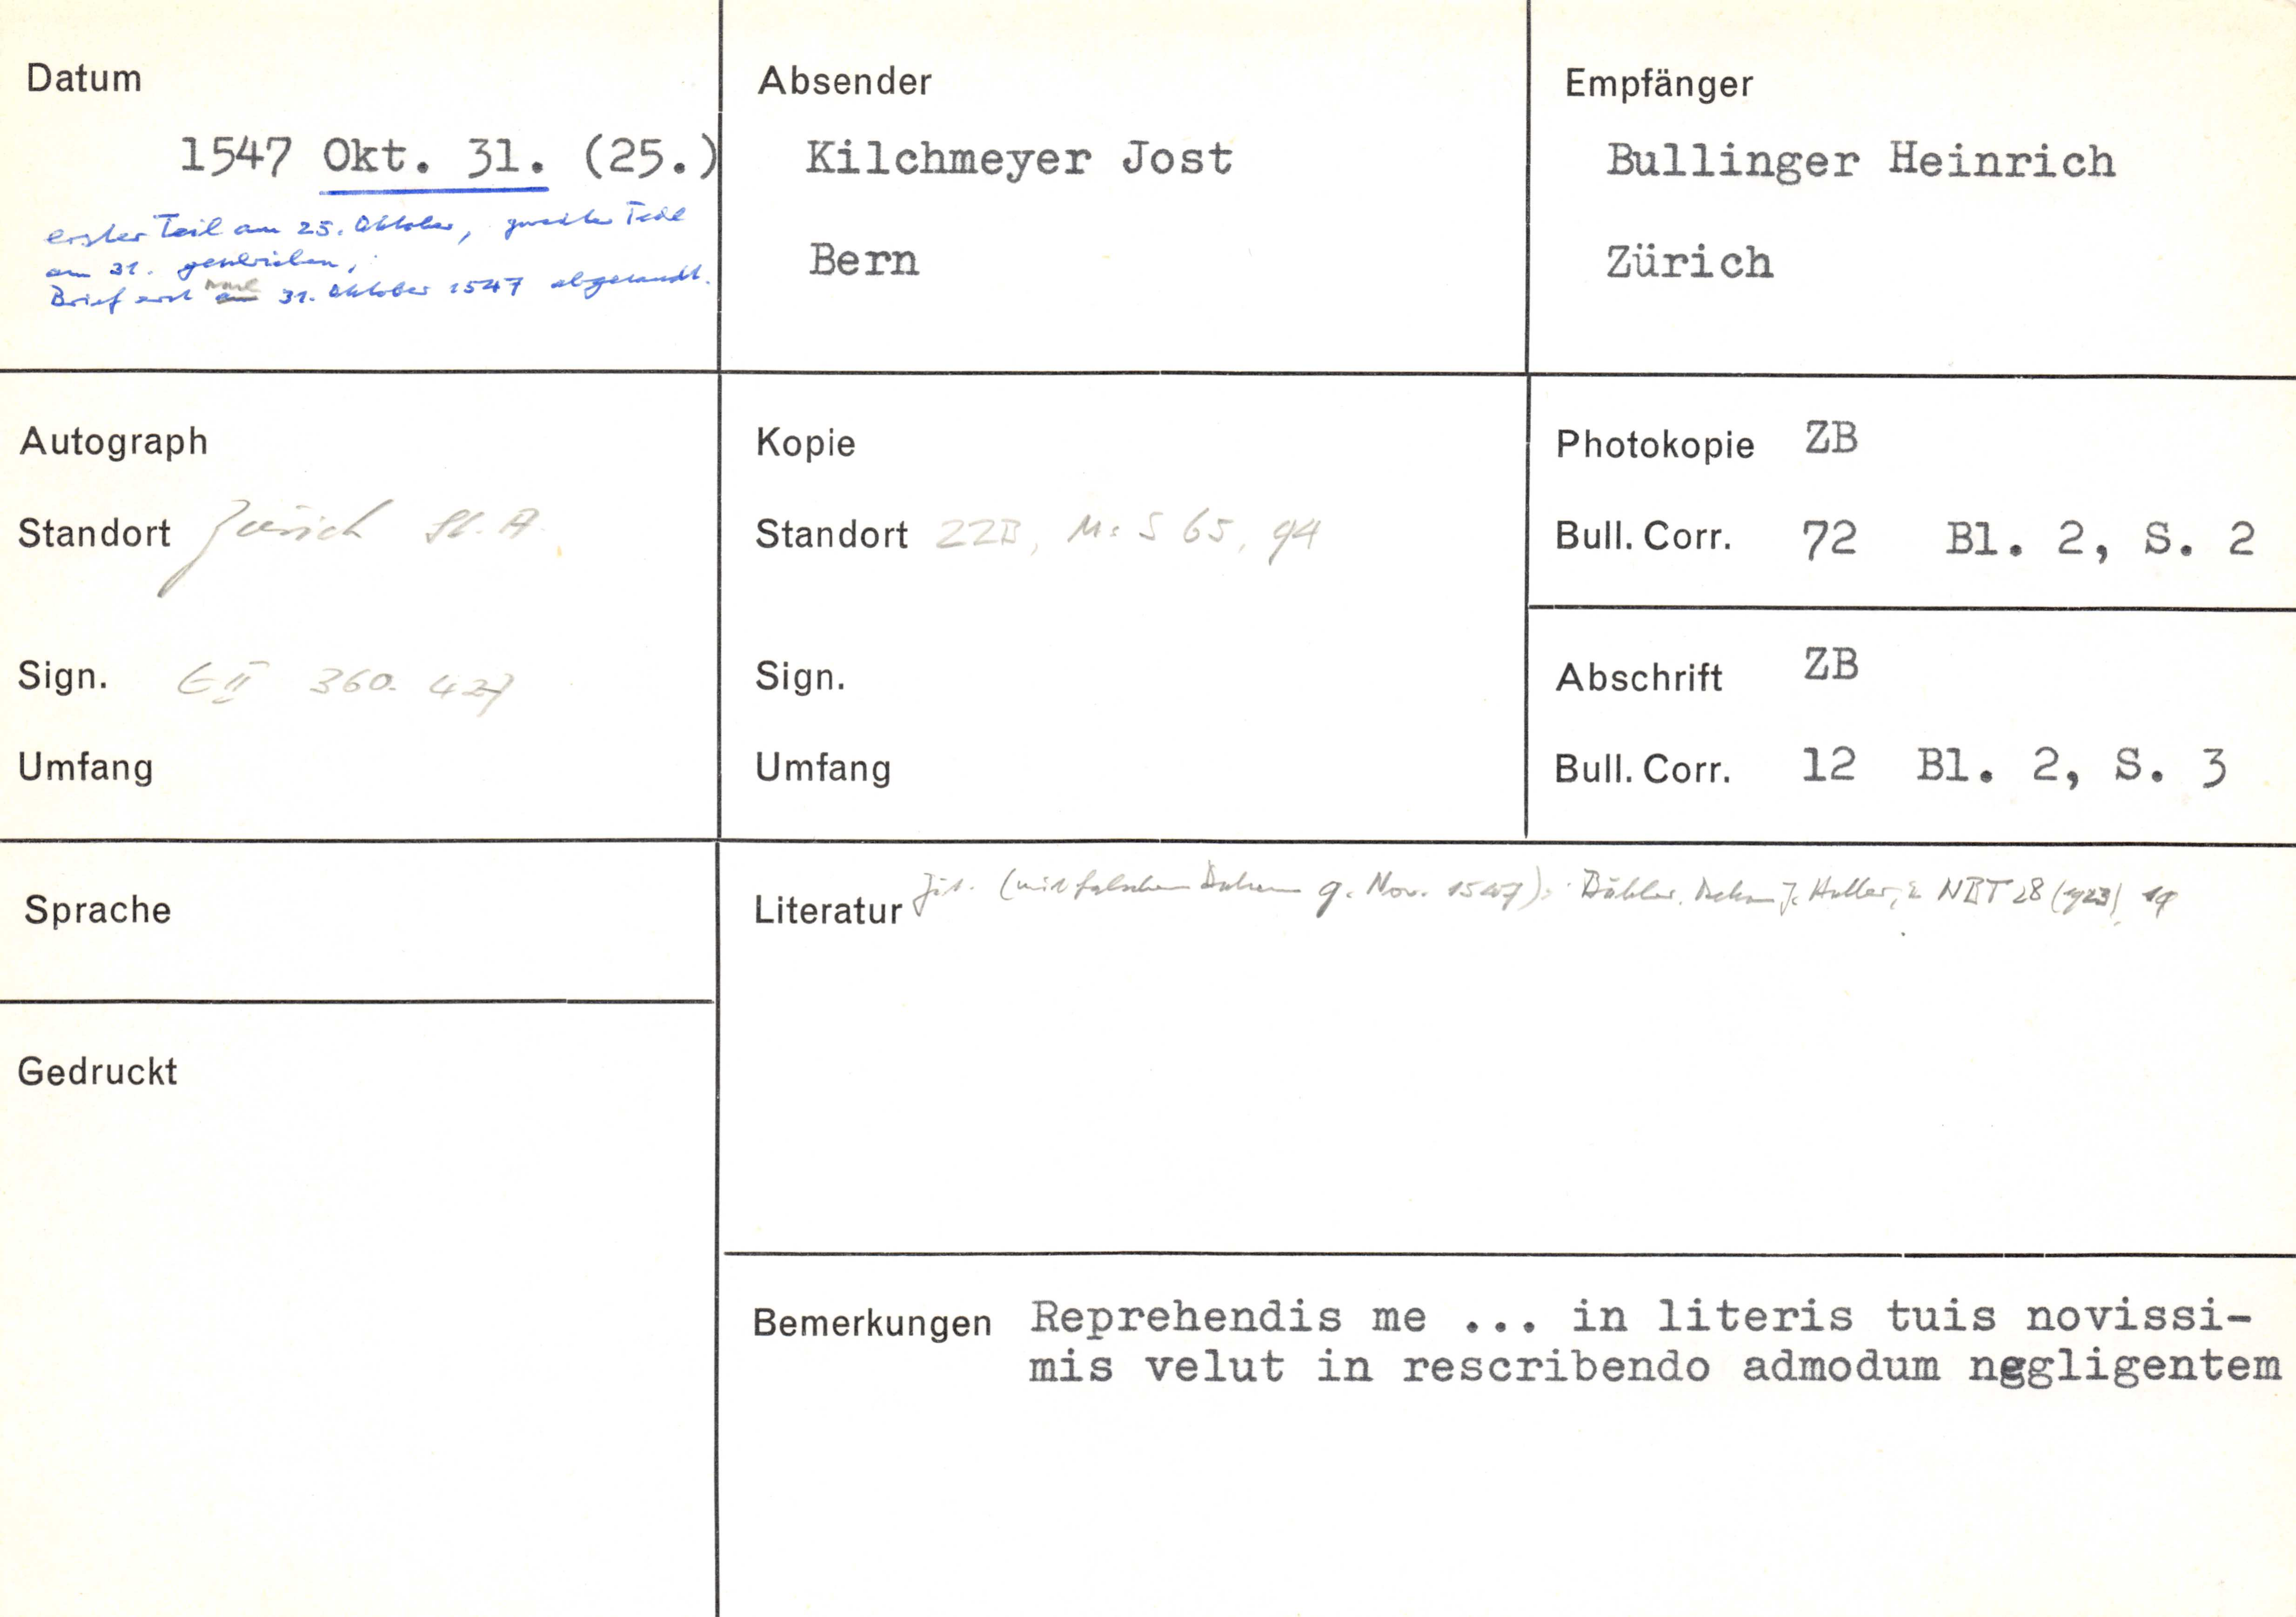 Datum
1547 Okt. 31. (25.)
erster Teil am 25. Oktober, zweiter Teil
am 31. geschrieben,
Brief erst nach 31. Oktober 1547 abgesandt.
Absender
Kilchmeyer Jost
Bern
Empfänger
Bullinger Heinrich
Zürich
Autograph
Standort Zürich St. A.
Sign. E II 360. 427
Umfang
Kopie
Standort ZZB, Ms S 65, 94
Sign.
Umfang
Photokopie ZB
Bull. Corr. 72 Bl. 2, S. 2
Abschrift ZB
Bull. Corr. 12 Bl. 2, S. 3
Sprache
Literatur Zit. (mit falschem Datum 9. Nov. 1547): Bähler, Dekan J. Haller, in NBT 28 (1923), 19
Gedruckt
Bemerkungen Reprehendis me ... in literis tuis novissi-
mis velut in rescribendo admodum neggligentem